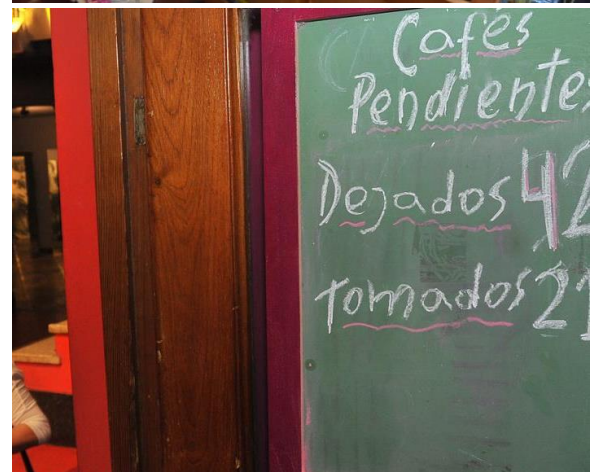 Cafés
Pendientes
Dejados 42
tomados 21